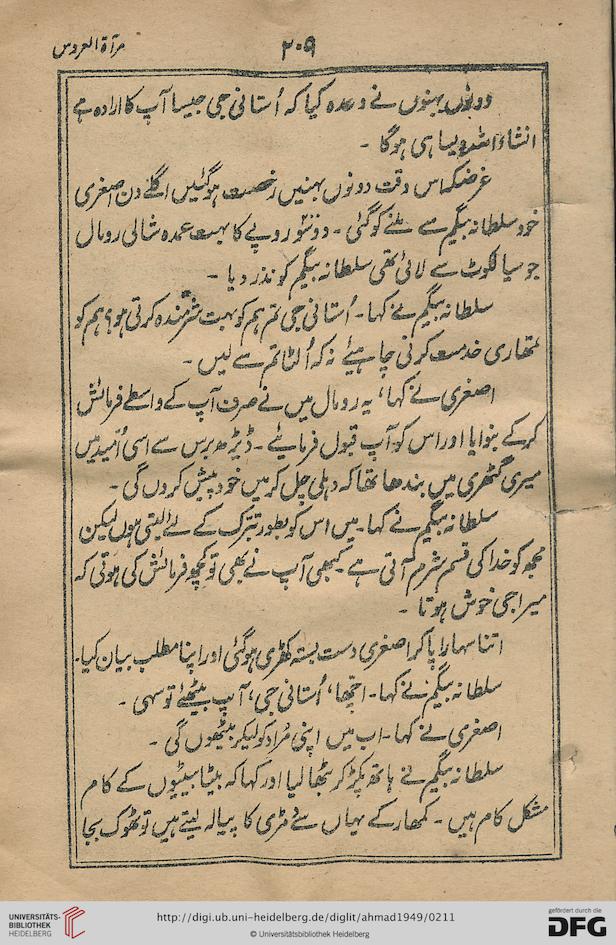 ۲۰۹
مرآة العروس
دونوں بہنوں نے وعدہ کیا کہ اُستانی جی جیسا آپ کا ارادہ ہے
انشاءاللہ ویسا ہی ہوگا ۔
غرضکہ اس وقت دونوں بہنیں رخصت ہوگئیں اگلے دن اصغری
خود سلطانہ بیگم سے ملنے کو گئی ۔ دو سَو روپے کا بہت عمدہ شالی رومال
جو سیالکوٹ سے لائی تھی سلطانہ بیگم کو نذر دیا ۔
سلطانہ بیگم نے کہا ۔ اُستانی جی تم ہم کو بہت شرمندہ کرتی ہو؟ ہم کو
تمھاری خدمت کرنی چاہیئے نہ کہ اُلٹا تم سے لیں ۔
اصغری نے کہا، یہ رومال میں نے صرف آپ کے واسطے فرمائش
کرکے بنوایا اور اس کو آپ قبول فرمایئے ۔ ڈیڑھ برس سے اسی اُمید میں
میری گٹھری میں بندھا تھا کہ دہلی چل کر میں خود پیش کروں گی ۔
سلطانہ بیگم نے کہا ۔ میں اس کو بطور تبرک کے لئے لیتی ہوں لیکن
مجھ کو خدا کی قسم شرم آتی ہے کبھی آپ نے بھی تو کچھ فرمائش کی ہوتی کہ
میرا جی خوش ہوتا ۔
اتنا سہارا پاکر اصغری دست بستہ کھڑی ہوگئی اور اپنا مطلب بیان کیا ۔
سلطانہ بیگم نے کہا ۔ اچھا، اُستانی جی، آپ بیٹھئے تو سہی ۔
اصغری نے کہا ۔ اب میں اپنی مُراد کو لیکر بیٹھوں گی ۔
سلطانہ بیگم نے ہاتھ پکڑ کر بٹھا لیا اور کہا کہ بیٹا بیٹیوں کے کام
مشکل کام ہیں ۔ کمھار کے یہاں سے مٹری کا پیالہ لیتے ہیں تو ٹھوک بجا
UNIVERSITÄTS-
BIBLIOTHEK
HEIDELBERG
http://digi.ub.uni-heidelberg.de/diglit/ahmad1949/0211
© Universitätsbibliothek Heidelberg
gefördert durch die
DFG